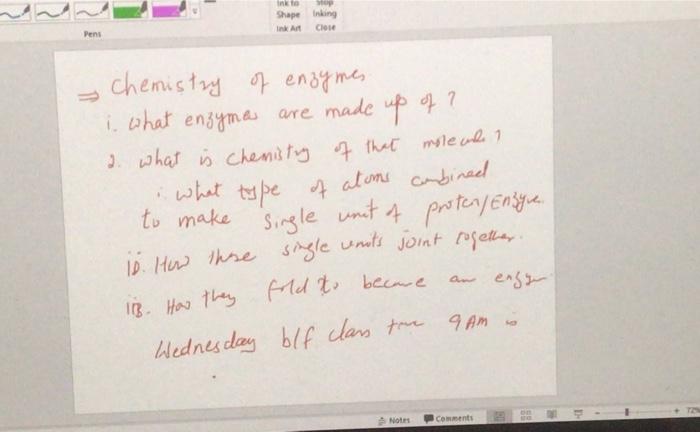 Ink to
Shape
Ink Art
Stop
Inking
Close
Pens
⇒ Chemistry of enzymes
i. what enzymes are made up of ?
2. what is chemistry of that molecule ?
i what type of atoms combined
to make single unit of protein/Enzyme.
ii. How these single units joint together.
iii. How they fold to became an enzyme
Wednesday b/f class time 9 AM is
Notes Comments